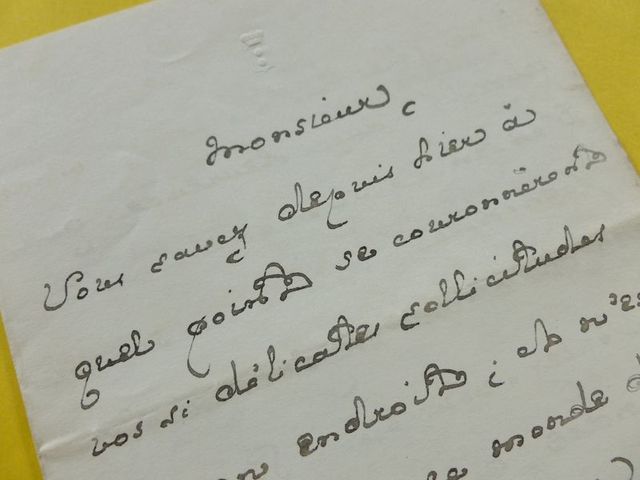 Monsieur,
Vous savez depuis hier à
quel point se couronnèrent
vos si délicates sollicitudes
endroit ; ce n'es
le monde d